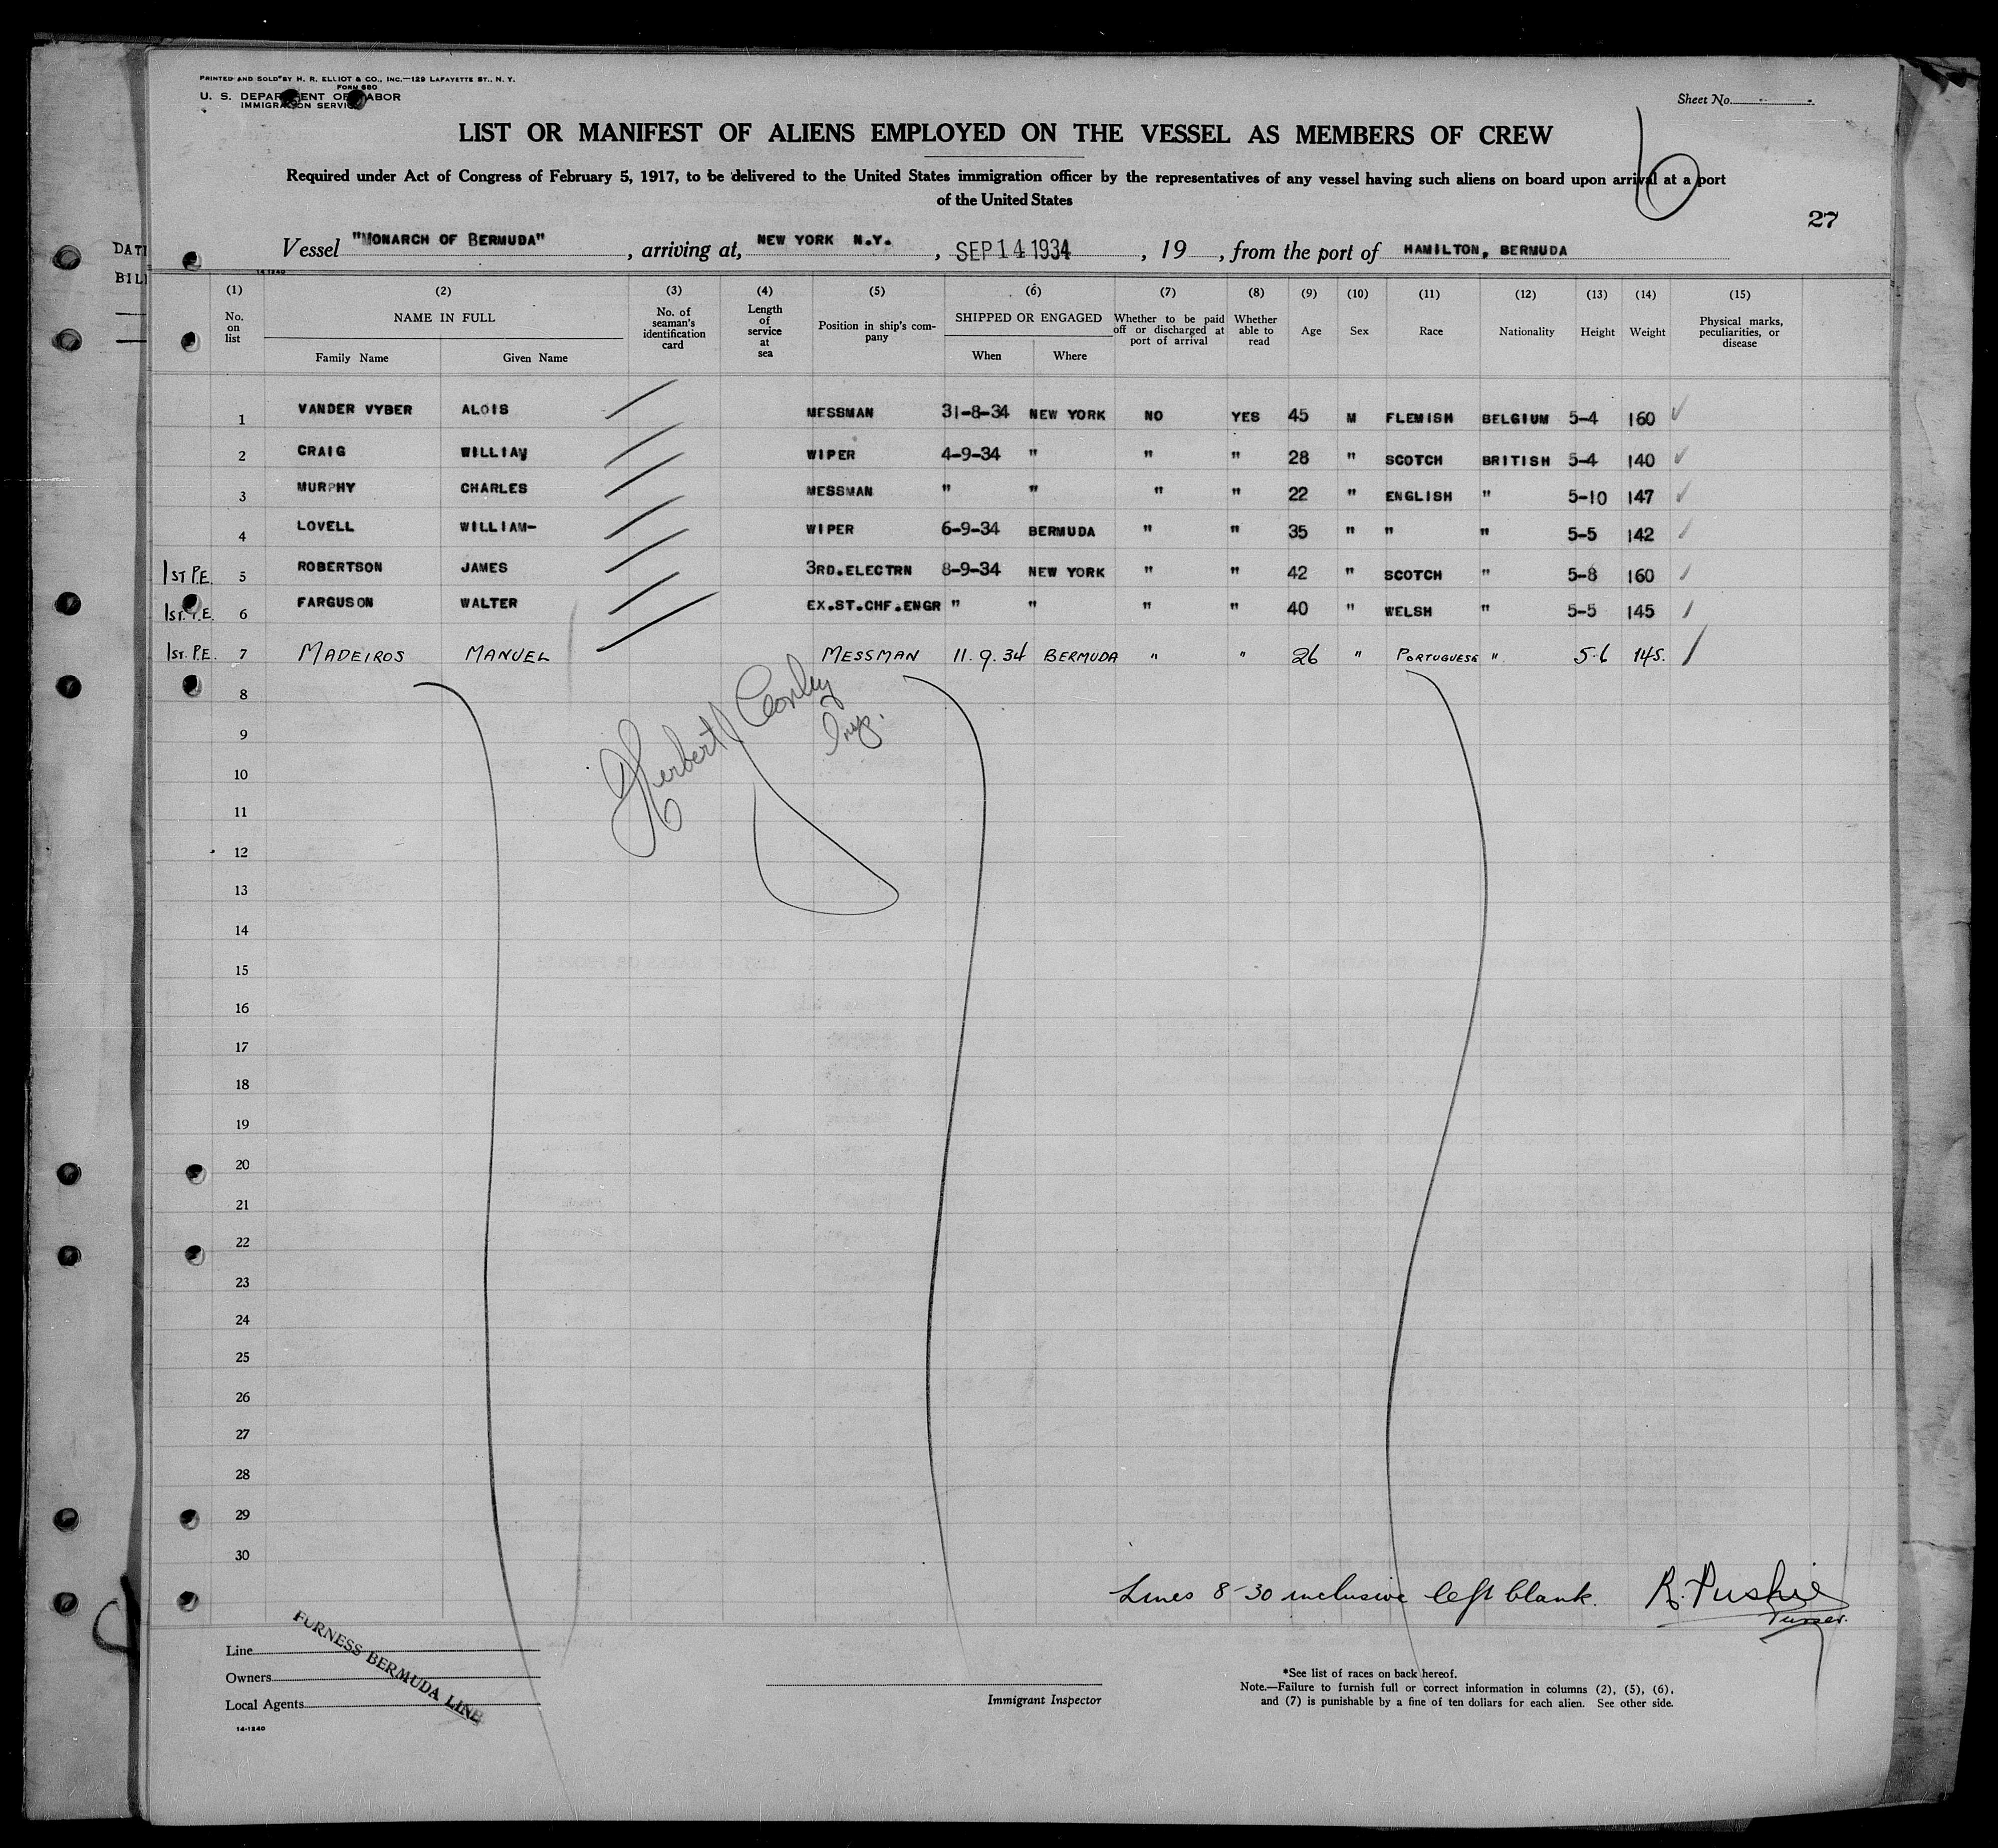 PRINTED AND SOLD BY H. R. ELLIOT & CO., INC.—129 LAFAYETTE ST., N. Y.
FORM 680
U. S. DEPARTMENT OF LABOR
IMMIGRATION SERVICE
Sheet No.
LIST OR MANIFEST OF ALIENS EMPLOYED ON THE VESSEL AS MEMBERS OF CREW
6
Required under Act of Congress of February 5, 1917, to be delivered to the United States immigration officer by the representatives of any vessel having such aliens on board upon arrival at a port
of the United States
27
DATE
BILL
Vessel "MONARCH OF BERMUDA", arriving at, NEW YORK N.Y., SEP 14 1934, 19, from the port of HAMILTON, BERMUDA
14-1240
(1) (2) (3) (4) (5) (6) (7) (8) (9) (10) (11) (12) (13) (14) (15)
No. on list NAME IN FULL No. of seaman's identification card Length of service at sea Position in ship's company SHIPPED OR ENGAGED Whether to be paid off or discharged at port of arrival Whether able to read Age Sex Race Nationality Height Weight Physical marks, peculiarities, or disease
Family Name Given Name When Where
1 VANDER VYBER ALOIS MESSMAN 31-8-34 NEW YORK NO YES 45 M FLEMISH BELGIUM 5-4 160 ✓
2 CRAIG WILLIAM WIPER 4-9-34 " " " 28 " SCOTCH BRITISH 5-4 140 ✓
3 MURPHY CHARLES MESSMAN " " " " 22 " ENGLISH " 5-10 147 ✓
4 LOVELL WILLIAM- WIPER 6-9-34 BERMUDA " " 35 " " " 5-5 142 /
1ST P.E. 5 ROBERTSON JAMES 3RD.ELECTRN 8-9-34 NEW YORK " " 42 " SCOTCH " 5-8 160 /
1ST. P.E. 6 FARGUSON WALTER EX.ST.CHF.ENGR " " " " 40 " WELSH " 5-5 145 /
1ST. P.E. 7 MADEIROS MANUEL MESSMAN 11.9.34 BERMUDA " " 26 " PORTUGUESE " 5-6 145. /
8
Herbert J Conley
Insp.
9
10
11
12
13
14
15
16
17
18
19
20
21
22
23
24
25
26
27
28
29
30
Lines 8-30 inclusive left blank. R. Pushie
Purser.
Line
Owners
Local Agents
FURNESS BERMUDA LINE
14-1240
Immigrant Inspector
*See list of races on back hereof.
Note.—Failure to furnish full or correct information in columns (2), (5), (6),
and (7) is punishable by a fine of ten dollars for each alien. See other side.